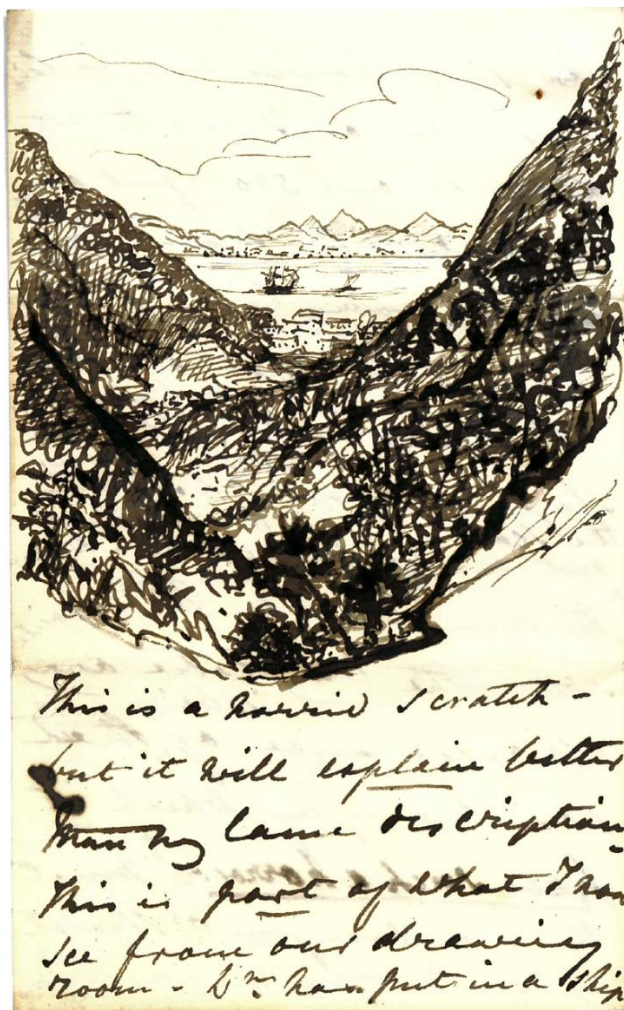 This is a horrid scratch -
but it will explain better
than my lame description
This is part of what I now
see from our drawing
room - Wm has put in a ship